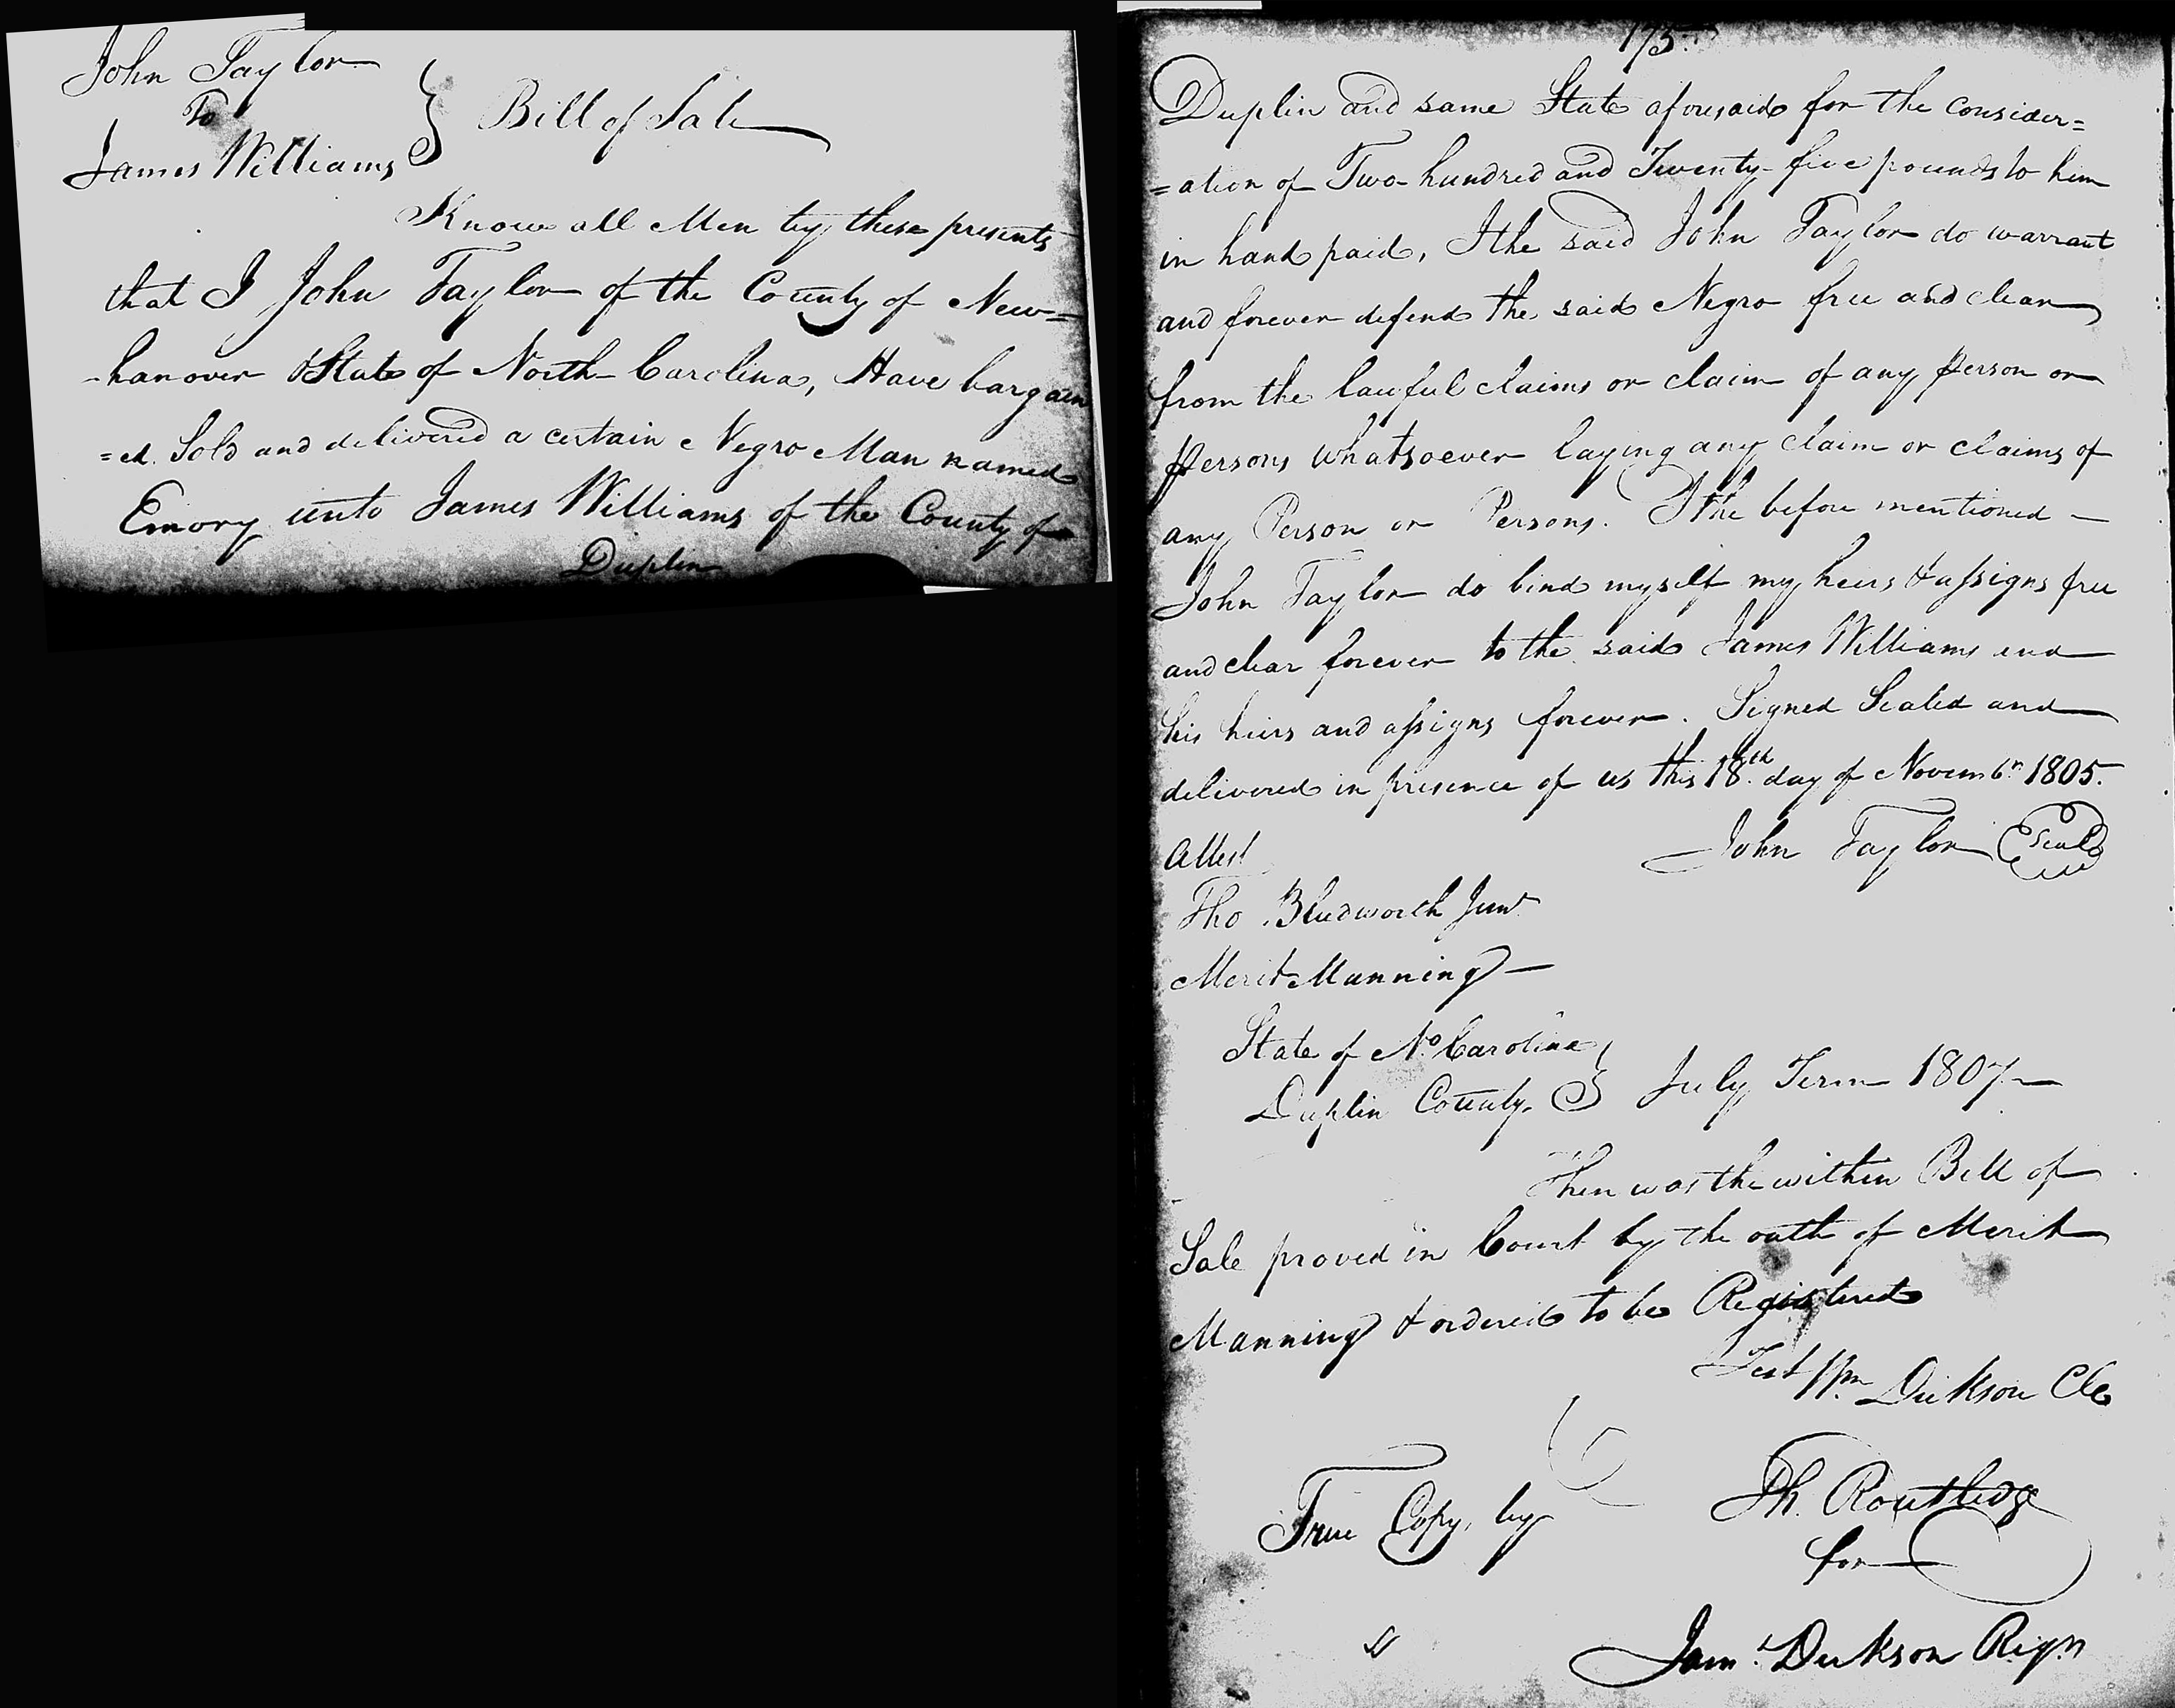 John Taylor
To
James Williams } Bill of Sale
Know all Men by these presents
that I John Taylor of the County of New=
-hanover & State of North-Carolina, Have bargain
=ed. Sold and delivered a certain Negro Man named
Emory unto James Williams of the County of
Duplin
173
Duplin and same State aforesaid for the consider=
=ation of Two-hundred and Twenty-five pounds to him
in hand paid, I the said John Taylor do warrant
and forever defend the said Negro free and clear
from the lawful claims or claim of any Person or
Persons whatsoever laying any claim or claims of
any Person or Persons. I the before mentioned -
John Taylor do bind myself my heirs & assigns free
and clear forever to the said James Williams and
his heirs and assigns forever. Signed Sealed and
delivered in presence of us this 18th day of Novembr 1805.
Attest John Taylor Seal
Tho. Bludworth Junr
Merit Manning -
State of No Carolina
Duplin County. } July Term 1807 -
Then was the within Bill of
Sale proved in Court by the oath of Merit
Manning & ordered to be Registered
Test Wm Dickson Clk
True Copy, by Th. Routledge
for
Jams Dickson Regr